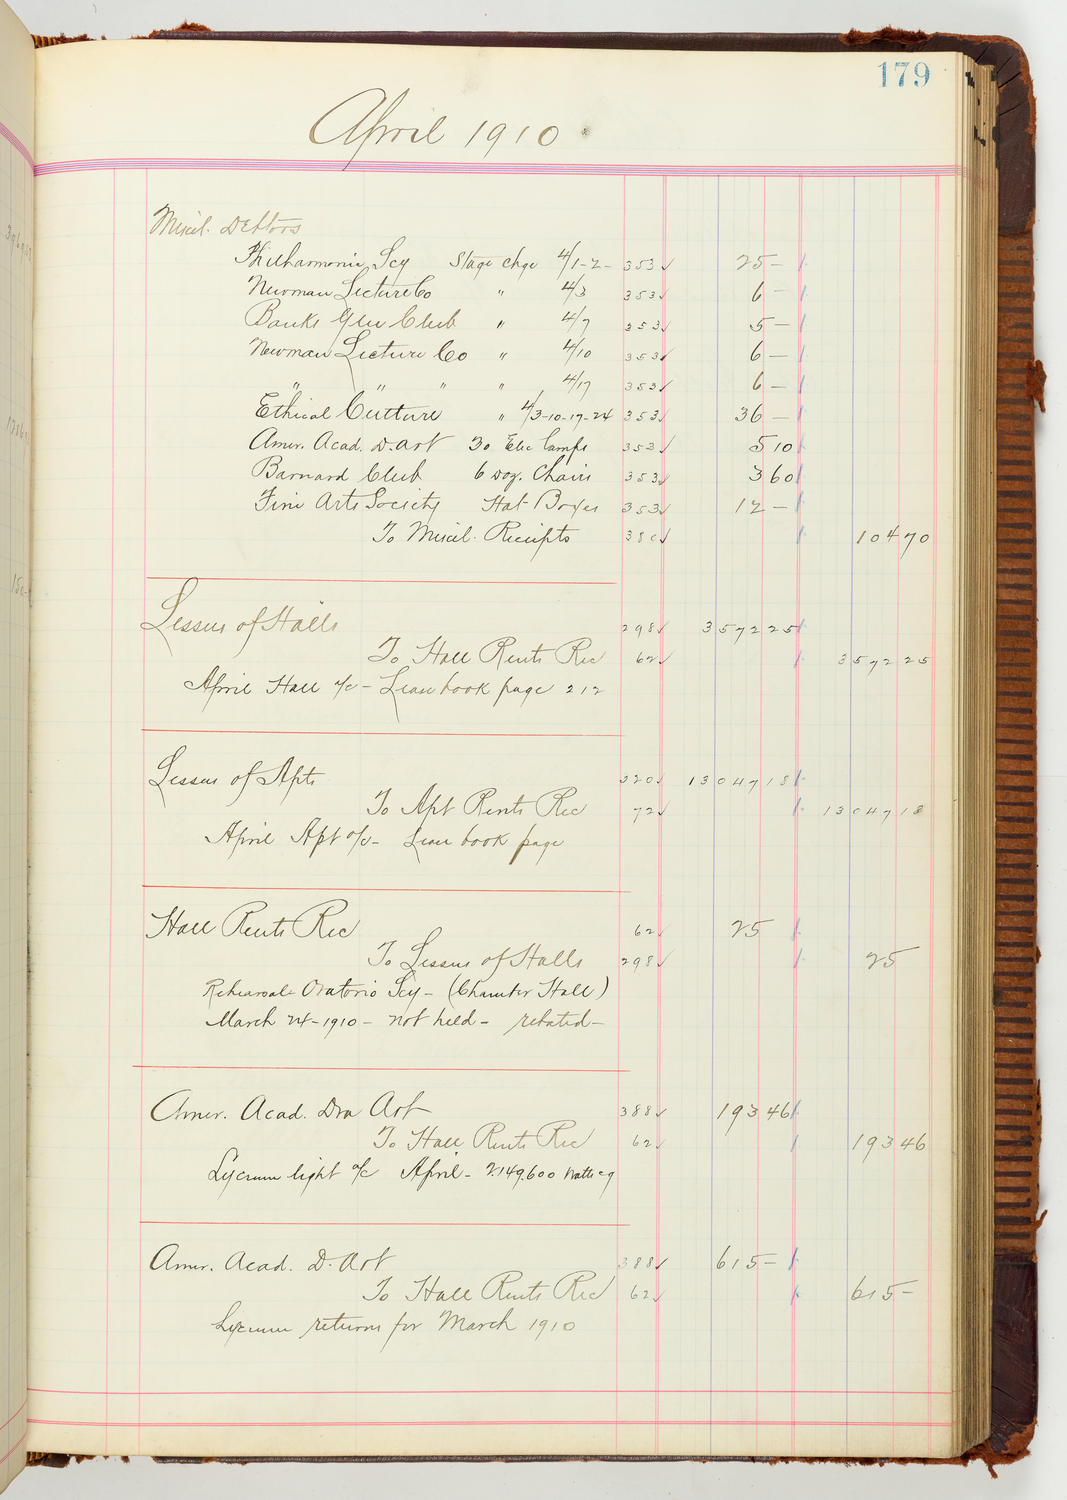 179
April 1910
Miscl. Debtors
Philharmonic Scy Stage chge 4/1-2- 353 ✓ 25 -
Newman Lecture Co " 4/3 353 ✓ 6 -
Banks Glee Club " 4/7 353 ✓ 5 -
Newman Lecture Co " 4/10 353 ✓ 6 -
" " " " 4/17 353 ✓ 6 -
Ethical Culture " 4/3-10-17-24 353 ✓ 36 -
Amer. Acad. D. Art 30 Elec Lamps 353 ✓ 5 10
Barnard Club 6 Doz. Chairs 353 ✓ 3 60
Fine Arts Society Hat Boxes 353 ✓ 12 -
To Miscl. Receipts 380 ✓ 104 70
Lessees of Halls 298 ✓ 3572 25
To Hall Rents Rec 62 ✓ 3572 25
April Hall a/c - Lease book page 212
Lessees of Apts 320 ✓ 13047 18
To Apt Rents Rec 72 ✓ 13047 18
April Apt a/c - Lease book page
Hall Rents Rec 62 ✓ 25
To Lessees of Halls 298 ✓ 25
Rehearsal Oratorio Scy - (Chamber Hall)
March 24-1910 - not held - rebated -
Amer. Acad. Dra Art 388 ✓ 193 46
To Hall Rents Rec 62 ✓ 193 46
Lyceum light a/c April - 2149.600 Watts
Amer. Acad. D. Art 388 ✓ 615 -
To Hall Rents Rec 62 ✓ 615 -
Lyceum returns for March 1910